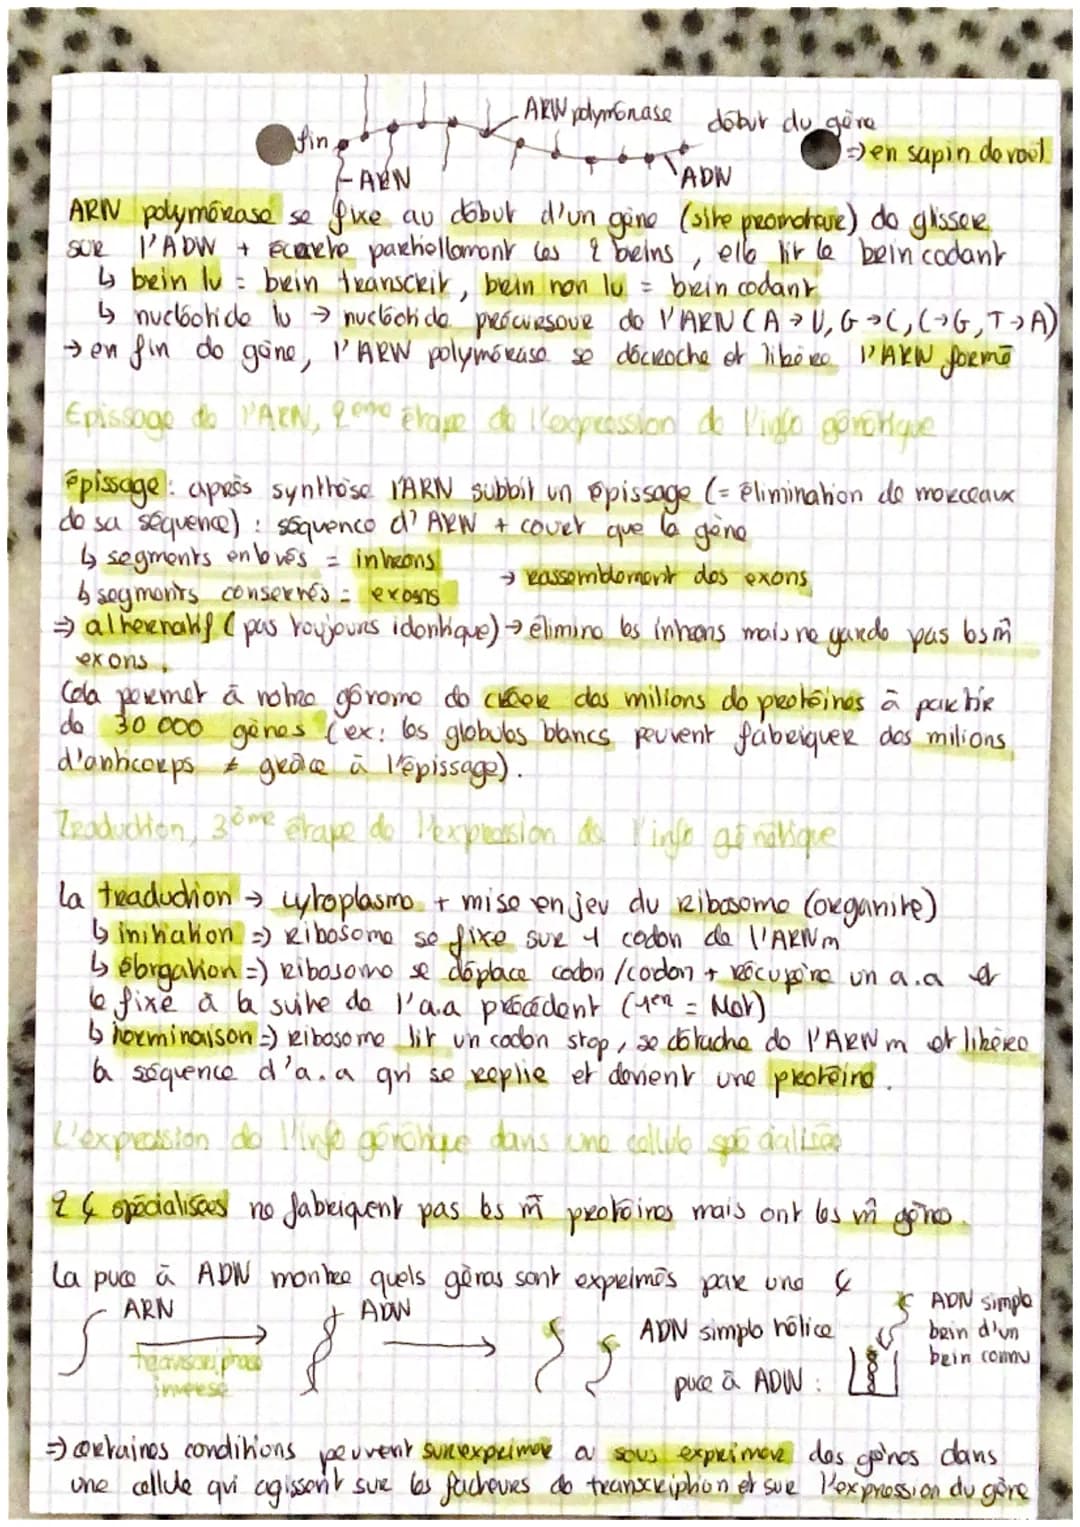 ARN polymérase début du gène
fin ⇒ en sapin de noël
ARN ADN
ARN polymérase se fixe au début d'un gène (site promoteur) de glisser
sur l'ADN + écarte partiellement les 2 brins, elle lit le brin codant
↳ brin lu = brin transcrit, brin non lu = brin codant
↳ nucléotide lu → nucléotide précurseur de l'ARN (A→U, G→C, C→G, T→A)
→ en fin de gène, l'ARN polymérase se décroche et libère l'ARN formé
Epissage de l'ARN, 2ème étape de l'expression de l'info génétique
épissage : après synthèse l'ARN subbit un épissage (= élimination de morceaux
de sa séquence) : séquence d'ARN + court que le gène
↳ segments enlevés = introns
→ rassemblement des exons
↳ segments conservés = exons
⇒ alternatif (pas toujours identique) → élimine les introns mais ne garde pas les m̂
exons.
Cela permet à notre génome de créer des milions de protéines à partir
de 30 000 gènes (ex: les globules blancs peuvent fabriquer des milions
d'anticorps ≠ grâce à l'épissage).
Traduction, 3ème étape de l'expression de l'info génétique
La traduction → cytoplasme + mise en jeu du ribosome (organite)
↳ initiation ⇒ ribosome se fixe sur 1 codon de l'ARNm
↳ élongation ⇒ ribosome se déplace codon/codon + récupère un a.a et
le fixe à la suite de l'a.a précédent (1er = Met)
↳ terminaison ⇒ ribosome lit un codon stop, se détache de l'ARNm et libère
la séquence d'a.a qui se replie et devient une protéine.
L'expression de l'info génétique dans une cellule spécialisée
2 ȼ spécialisées ne fabriquent pas les m̂ protéines mais ont les m̂ gènes.
La puce à ADN montre quels gènes sont exprimés par une ȼ
ARN ADN ADN simple
ADN simple hélice brin d'un
transcriptase brin connu
inverse puce à ADN :
⇒ certaines conditions peuvent surexprimer ou sous exprimer des gènes dans
une cellule qui agissent sur les facteurs de transcription et sur l'expression du gène